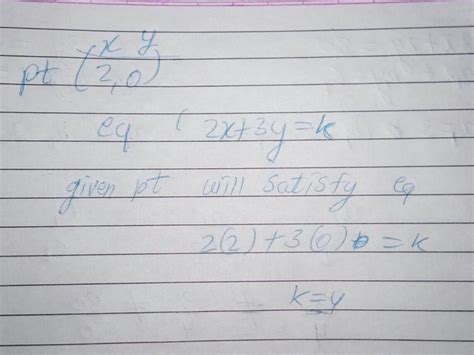 x y
pt (2,0)
eq ( 2x+3y=k
given pt will satisfy eq
2(2)+3(0) = k
k=4